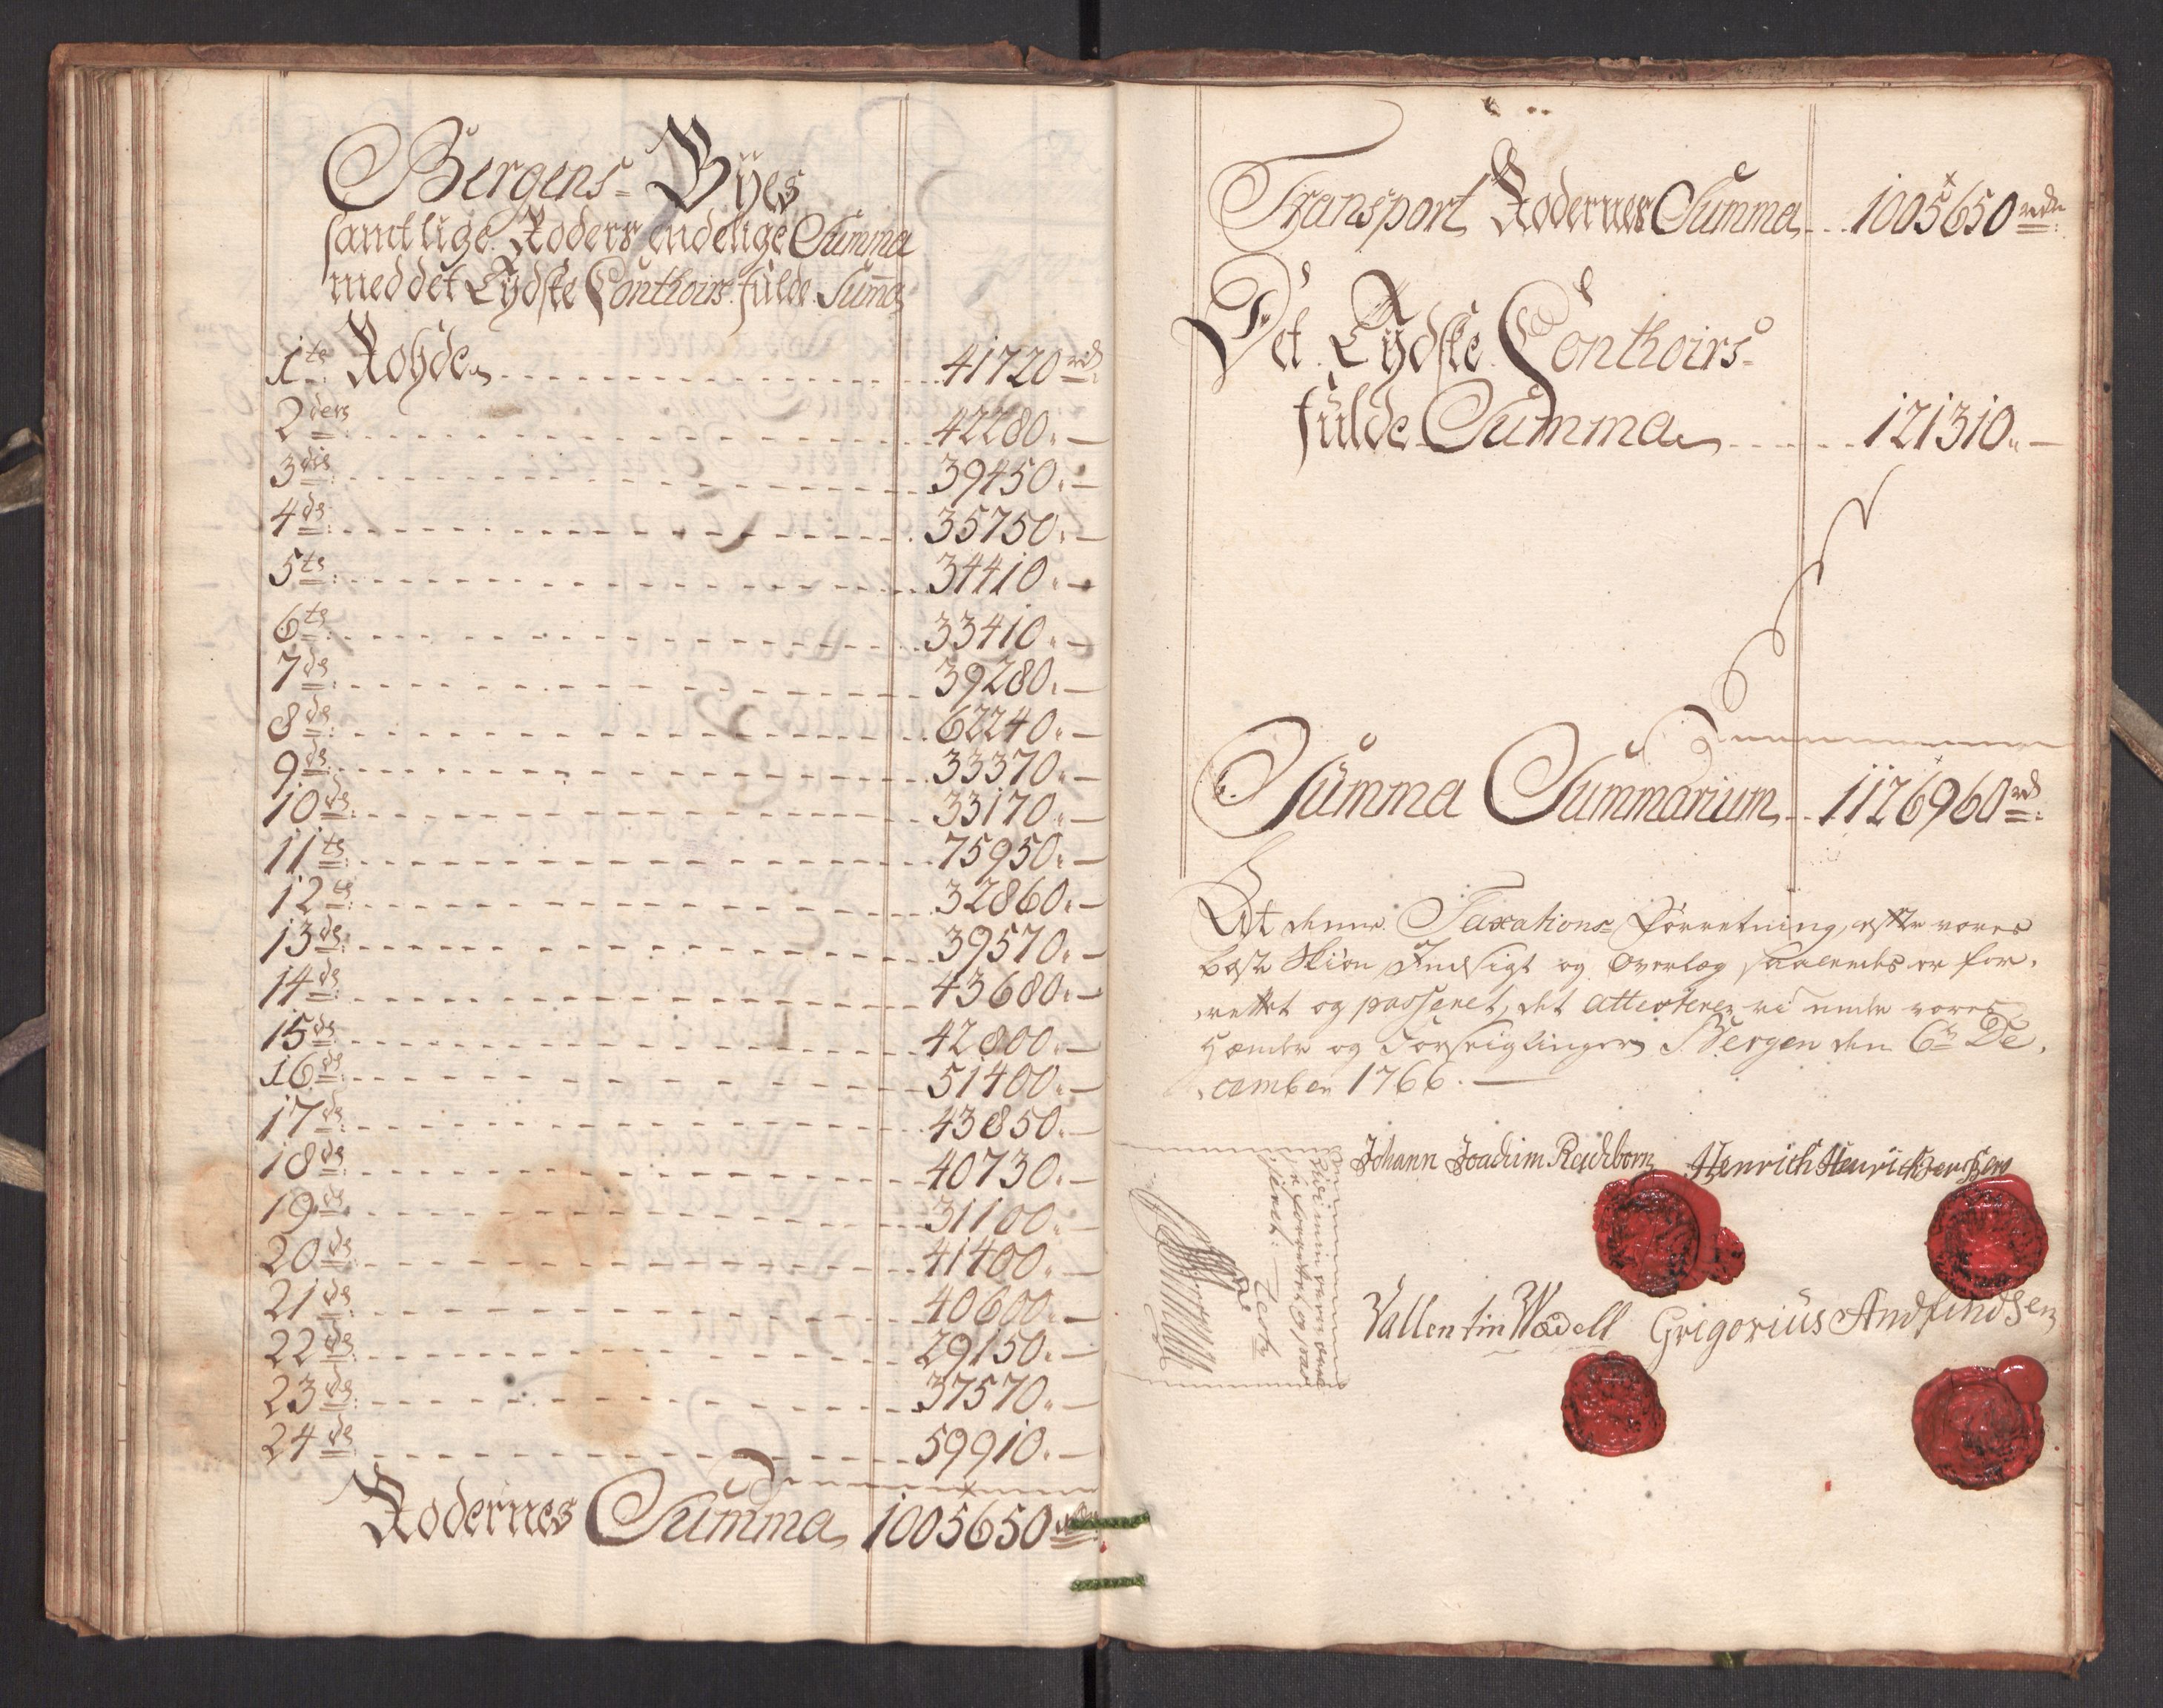 Bergens Byes
samtlige Roders endelige Summa
med det Tydske Conthoirs fulde Summa
1te Rohde 41720 rd
2ders 42280 „ —
3dis 39450 „ —
4ds 35750 „ —
5te 34410 „ —
6te 33410 „ —
7ds 39280 „ —
8ds 62240 „ —
9ds 33370 „ —
10ds 33170 „ —
11te 75950 „ —
12te 32860 „ —
13ds 39570 „ —
14ds 43680 „ —
15ds 42800 „ —
16ds 51400 „ —
17ds 43850 „ —
18ds 40730 „ —
19ds 31100 „
20ds 41400 „ —
21ds 40600 „ —
22ds 29150 „ —
23ds 37570 „ —
24ds 59910 „ —
Rodernes Summa 1005650
Transport Rodernes Summa 1005650 rdr
Det Tydske Conthoirs
fulde Summa 121310 „ —
Summa Summarium 1126960 rd
At denne Taxations Forretning, efter vores
beste Skiøn Indsigt og Overlæg saaledes er for-
rettet og passeret, det attesterer vi under vores
Hænder og Forseiglinger Bergen den 6te De-
cember 1766. —
Johann Joachim Reichborn Henrich Henrichsen
Vallentin Wædell Grigorius Andfindsen